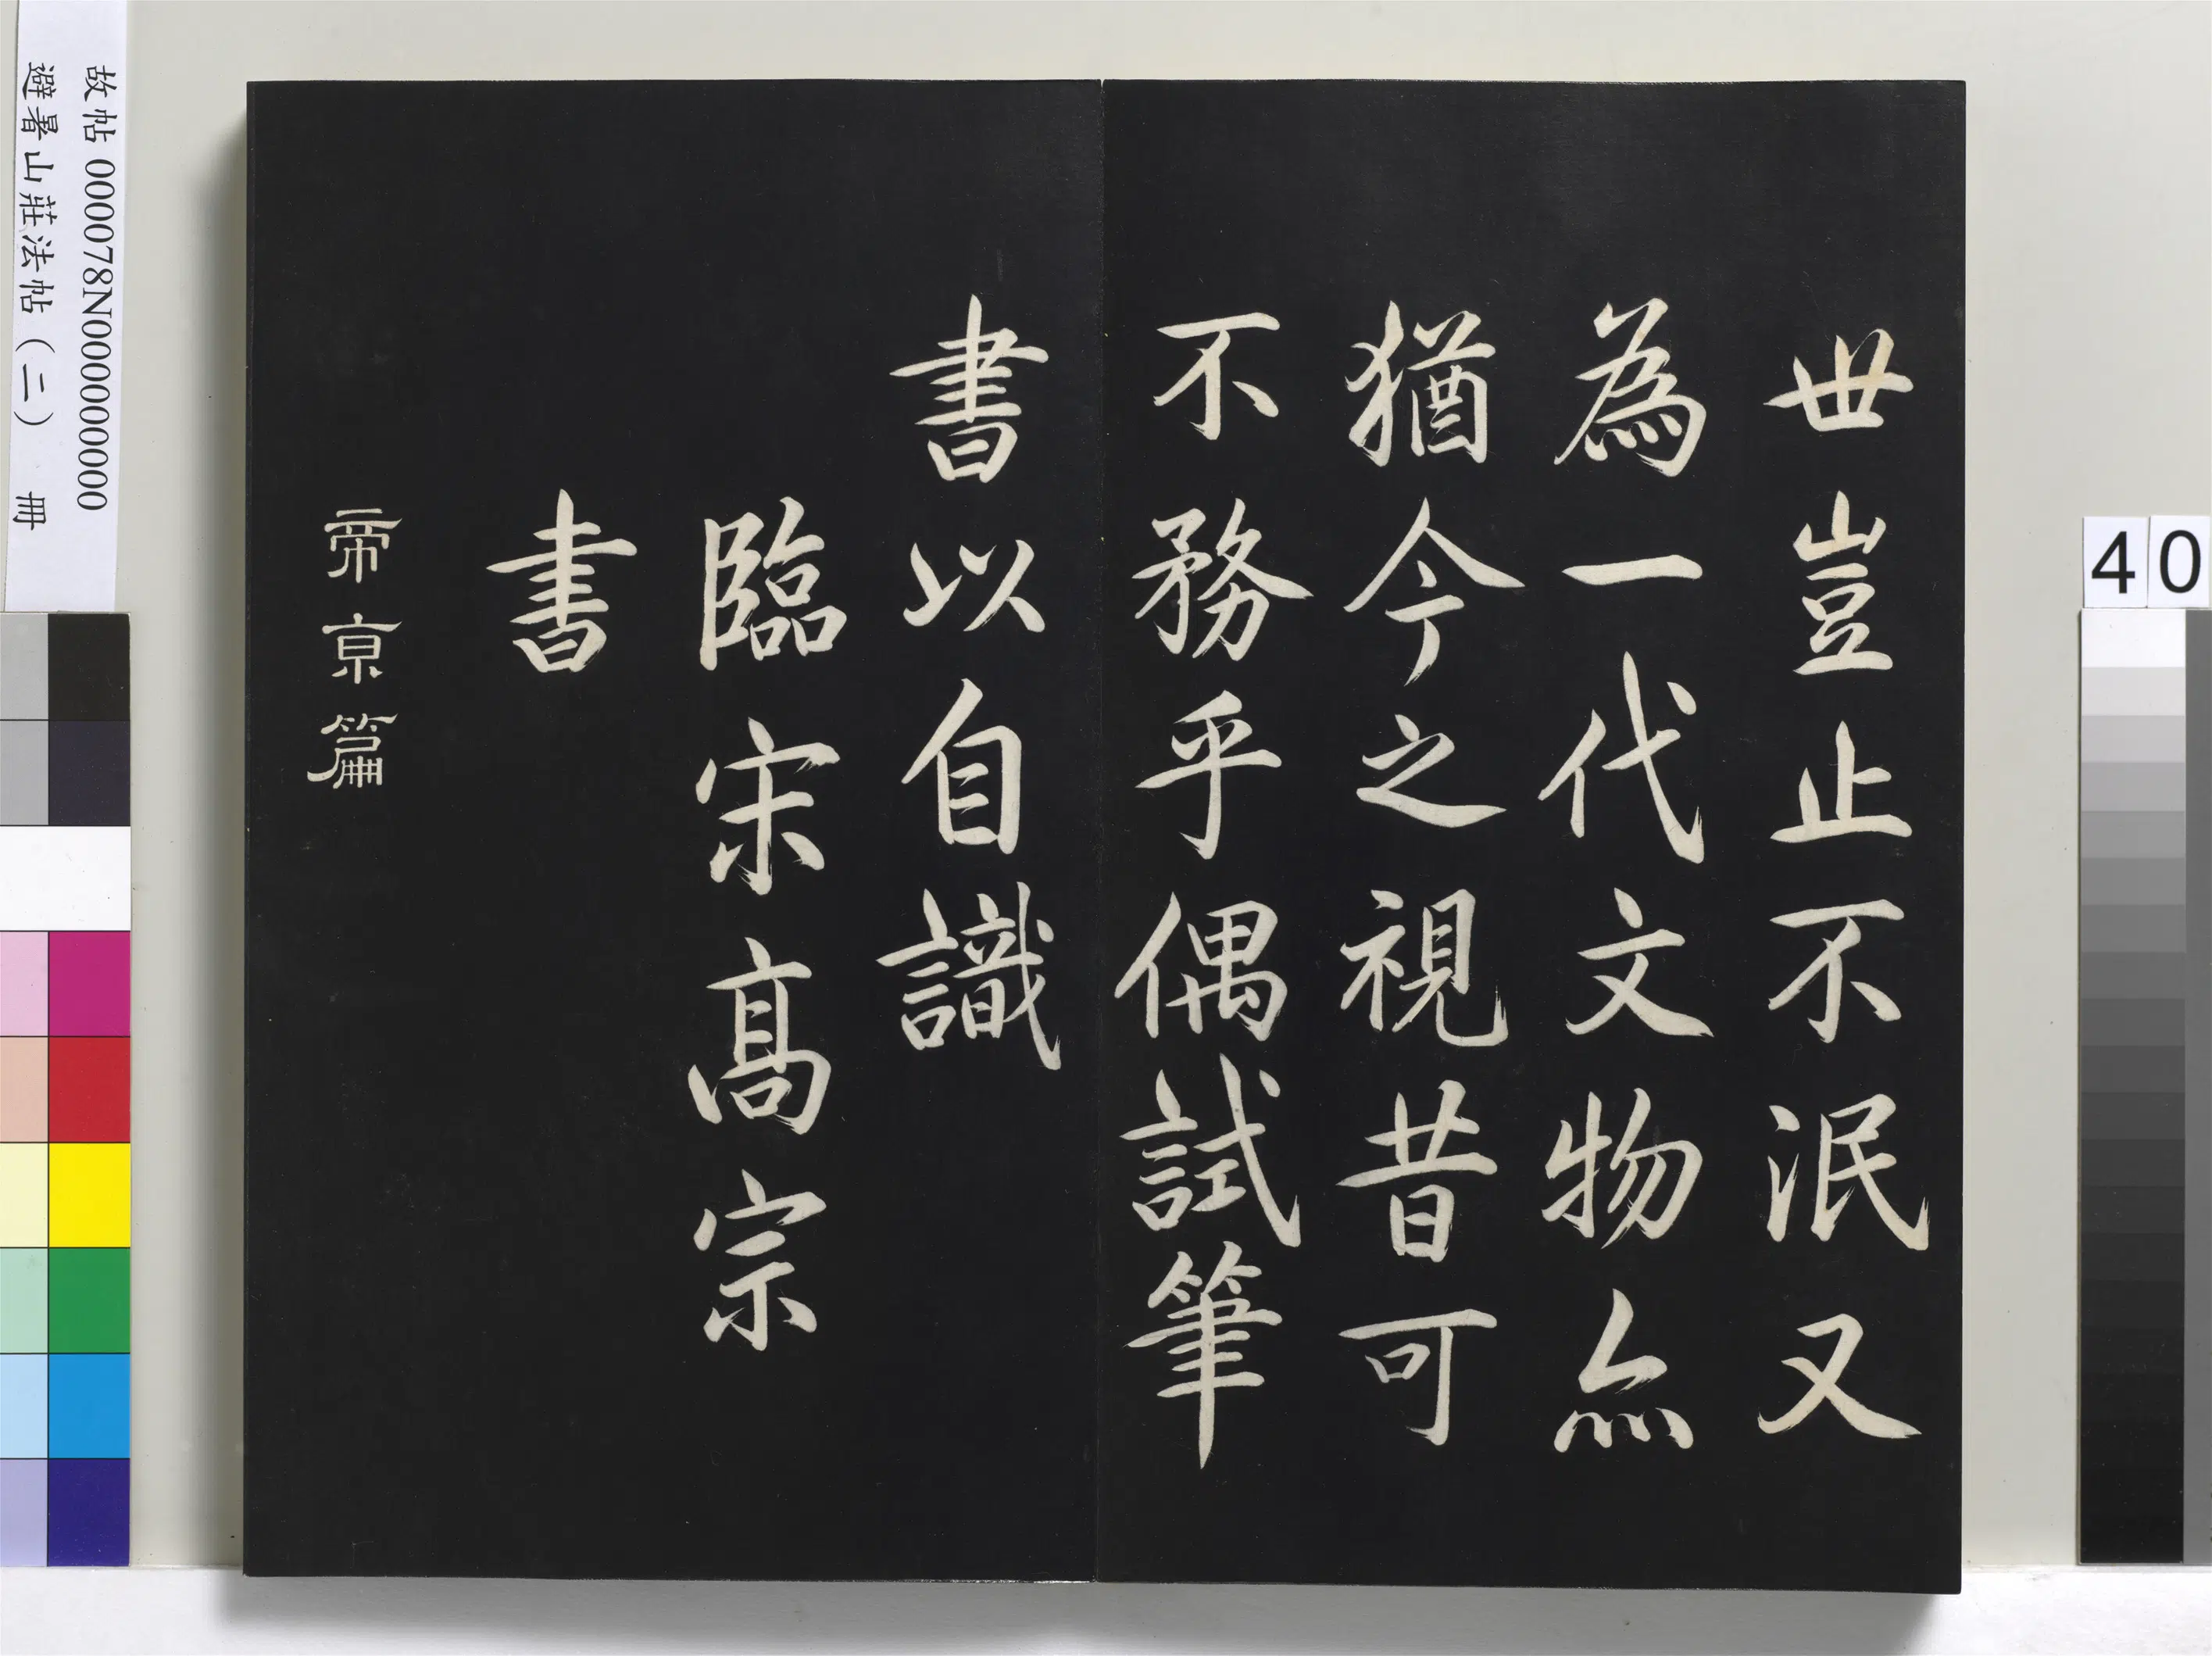 世豈止不泯又
為一代文物亦
猶今之視昔可
不務乎偶試筆
書以自識
臨宋高宗
書
帝京篇
故帖 000078N000000000
避暑山莊法帖（二） 冊
40